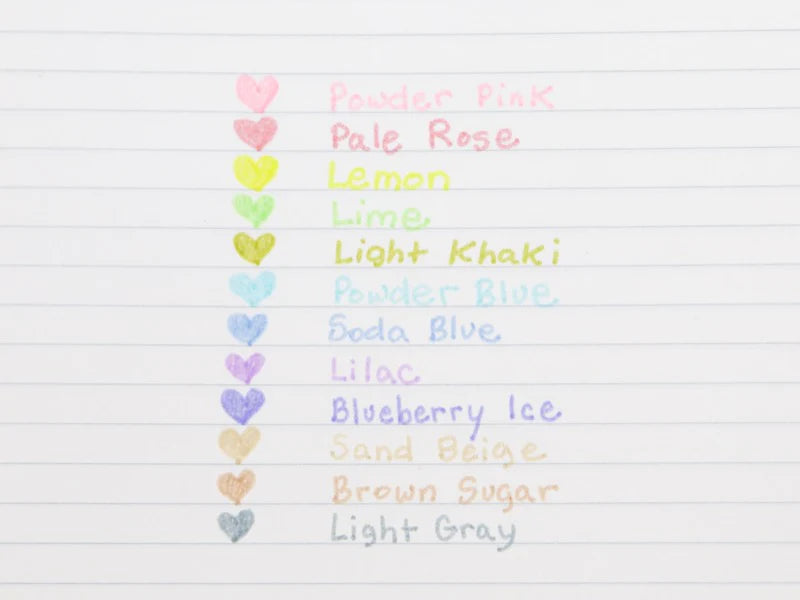 Powder Pink
Pale Rose
Lemon
Lime
Light Khaki
Powder Blue
Soda Blue
Lilac
Blueberry Ice
Sand Beige
Brown Sugar
Light Gray